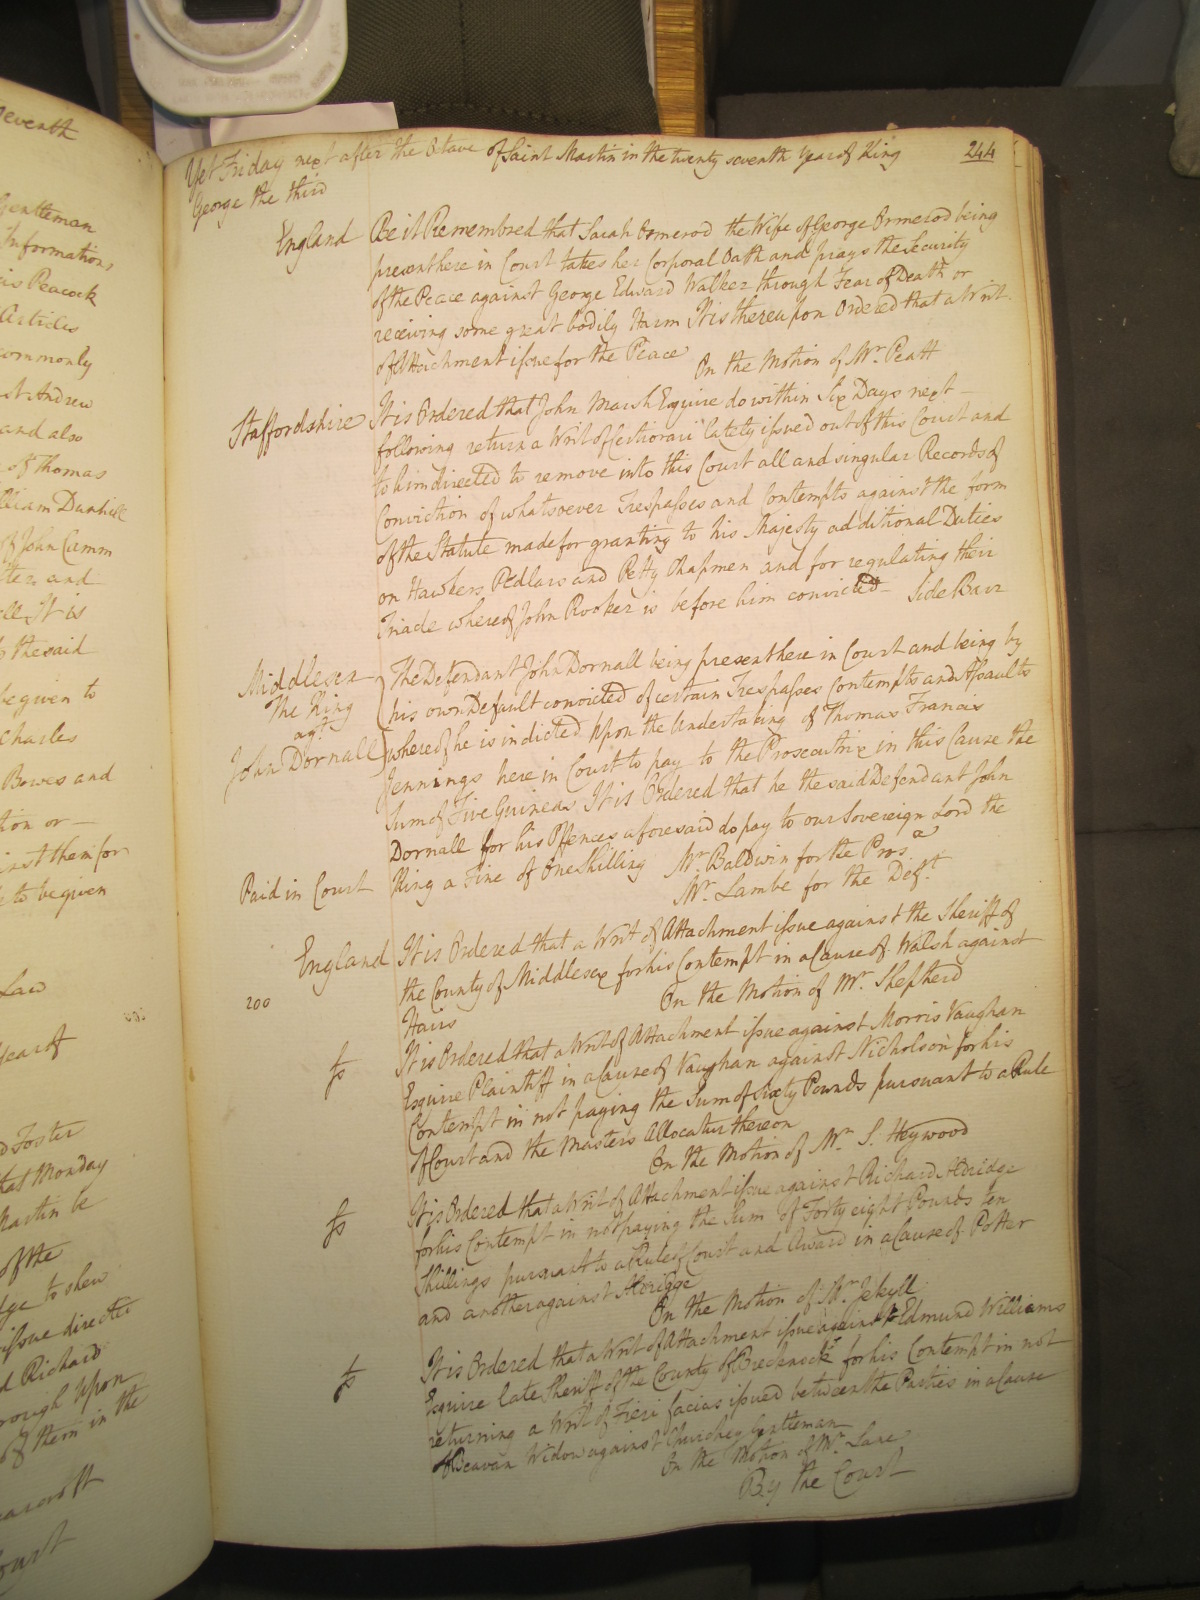 seventh
Gentleman
Informations
is Peacock
Articles
commonly
St Andrew
and also
of Thomas
William
of John Camm
and
It is
the said
be given to
Charles
Bowes and
tion or —
inst them for
to be given
Law
Year of
Foster
that Monday
Martin be
of the
to shew
issue directed
Richard
rough upon
of them in the
Court
Yet Friday next after the Octave of Saint Martin in the twenty seventh Year of King 244
George the third
England Be it Remembred that Sarah Ormerod the Wife of George Ormerod being
present here in Court takes her Corporal Oath and prays the Security
of the Peace against George Edward Walker through Fear of Death or
receiving some great bodily Harm It is thereupon Ordered that a Writ
of Attachment issue for the Peace On the Motion of Mr. Peatt
Staffordshire It is Ordered that John Marsh Esquire do within Six Days next —
following return a Writ of Certiorari lately issued out of this Court and
to him directed to remove into this Court all and singular Records of
Conviction of whatsoever Trespasses and Contempts against the form
of the Statute made for granting to his Majesty additional Duties
on Hawkers Pedlars and Petty Chapmen and for regulating their
Trade whereof John Rooker is before him convicted — Side Barr
Middlesex The Defendant John Dornall being present here in Court and being by
The King his own Default convicted of certain Trespasses Contempts and Assaults
agt. whereof he is indicted Upon the Undertaking of Thomas Francis
John Dornall Jennings here in Court to pay to the Prosecutrix in this Cause the
Sum of Five Guineas It is Ordered that he the said Defendant John
Dornall for his Offences aforesaid do pay to our Sovereign Lord the
Paid in Court King a Fine of One Shilling Mr. Baldwin for the Prosx
Mr. Lambe for the Deft.
England It is Ordered that a Writ of Attachment issue against the Sheriff of
200 the County of Middlesex for his Contempt in a Cause of Walsh against
Hairs On the Motion of Mr. Shepherd
fs It is Ordered that a Writ of Attachment issue against Morris Vaughan
Esquire Plaintiff in a Cause of Vaughan against Nicholson for his
Contempt in not paying the Sum of Sixty Pounds pursuant to a Rule
of Court and the Masters Allocatur thereon
On the Motion of Mr. S. Heywood
fs It is Ordered that a Writ of Attachment issue against Richard Aldridge
for his Contempt in not paying the Sum of Forty eight Pounds ten
Shillings pursuant to a Rule of Court and Award in a Cause of Potter
and another against Aldridge
On the Motion of Mr. Jekyll
fs It is Ordered that a Writ of Attachment issue against Edmund Williams
Esquire late Sheriff of the County of Brecknock for his Contempt in not
returning a Writ of Fieri facias issued between the Parties in a Cause
of Beavan Widow against Churchey Gentleman
On the Motion of Mr. Lane
By the Court